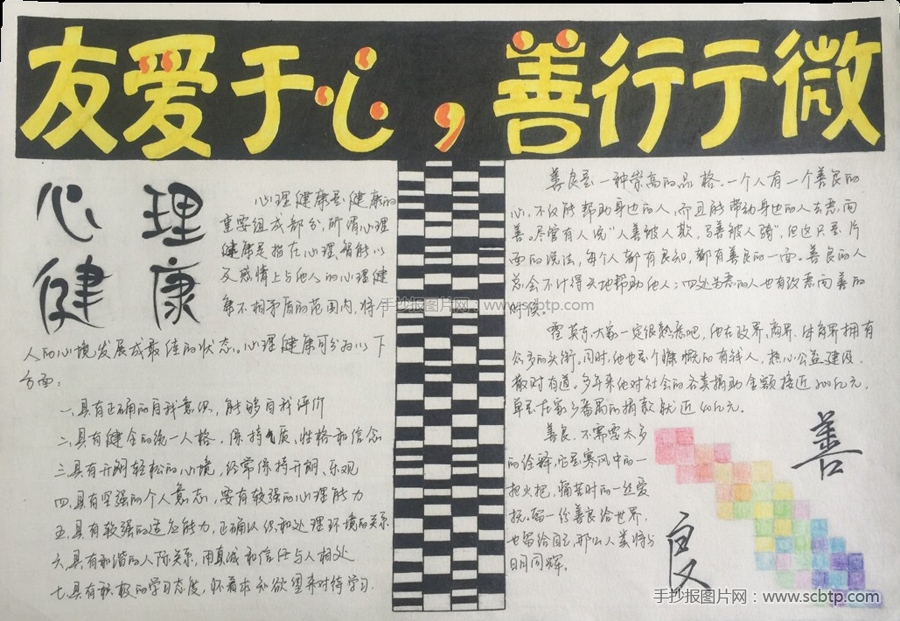 友爱于心，善行于微
心理
健康
心理健康是健康的
重要组成部分，所谓心理
健康是指在心理、智能以
及感情上与他人的心理健
康不相矛盾的范围内，将个
人的心境发展成最佳的状态。心理健康可分为以下
方面：
一.具有正确的自我意识，能够自我评价
二.具有健全的统一人格，保持气质、性格和信念
三.具有开朗轻松的心境，经常保持开朗、乐观
四.具有坚强的个人意志，要有较强的心理能力
五.具有较强的适应能力，正确认识和处理环境的关系
六.具有和谐的人际关系，用真诚和信任与人相处
七.具有积极的学习态度，怀着求知欲望来对待学习.
善良是一种崇高的品格，一个人有一个善良的
心，不仅能帮助身边的人，而且能带动身边的人去恶向
善。尽管有人说“人善被人欺，马善被人骑”，但这只是片
面的说法，每个人都有良知，都有善良的一面。善良的人
总会不计得失地帮助他人；四处为恶的人也有改恶向善的
时候。
霍英东，大家一定很熟悉吧，他在政界、商界、体育界拥有
众多的头衔，同时，他也是个慷慨的有钱人，热心公益建设，
散财有道。多年来他对社会的各类捐助金额接近200亿元，
单是在家乡番禺的捐款就近40亿元。
善良，不需要太多
的诠释，它是寒风中的一
把火把，痛苦时的一丝爱
抚。留一份善良给世界，
也留给自己，那么人类将与
日月同辉。
善
良
手抄报图片网：www.scbtp.com
手抄报图片网：www.scbtp.com